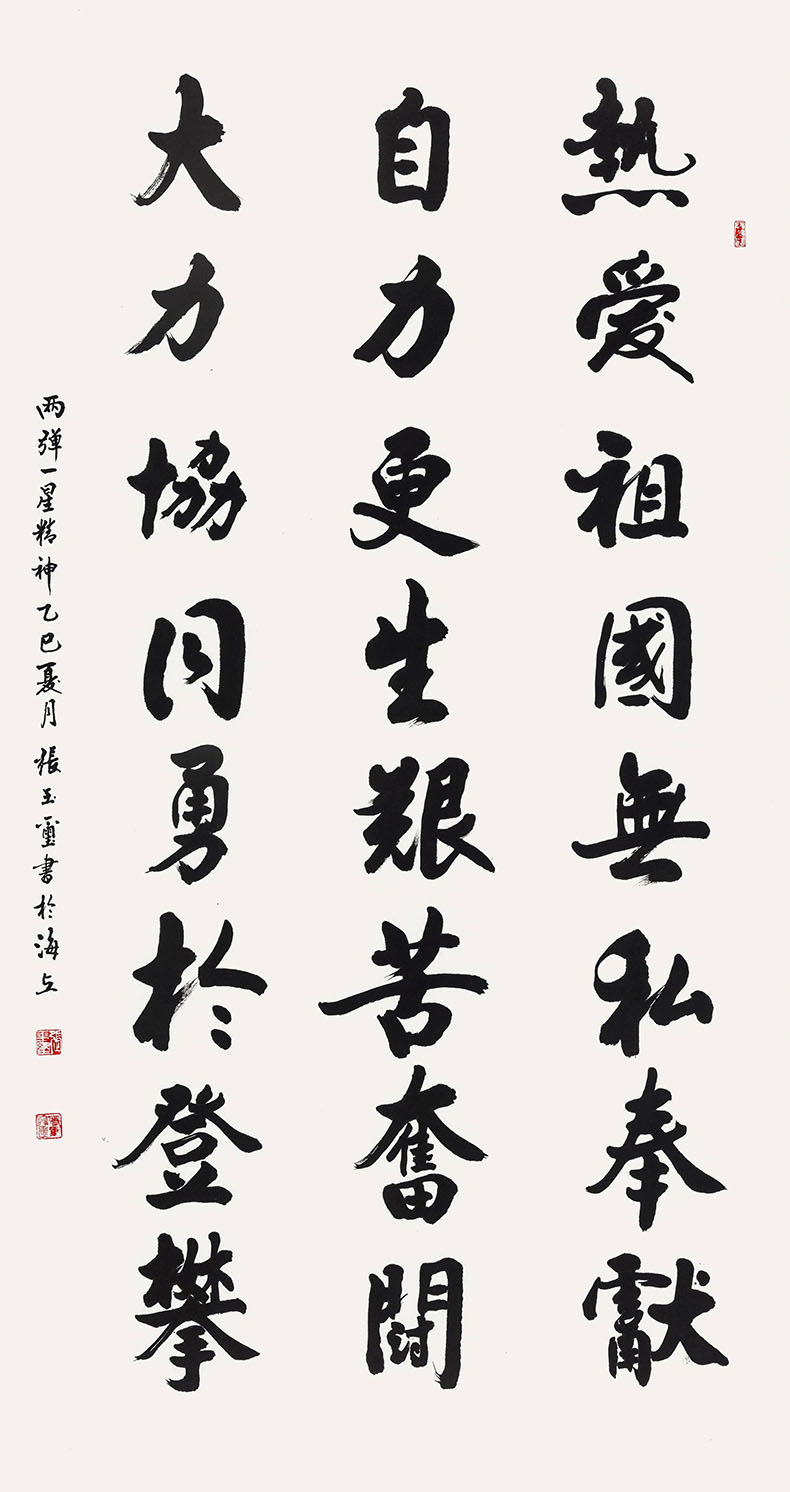 熱愛祖國無私奉獻
自力更生艱苦奮鬪
大力協同勇於登攀
两弹一星精神乙巳夏月張玉璽書於海上